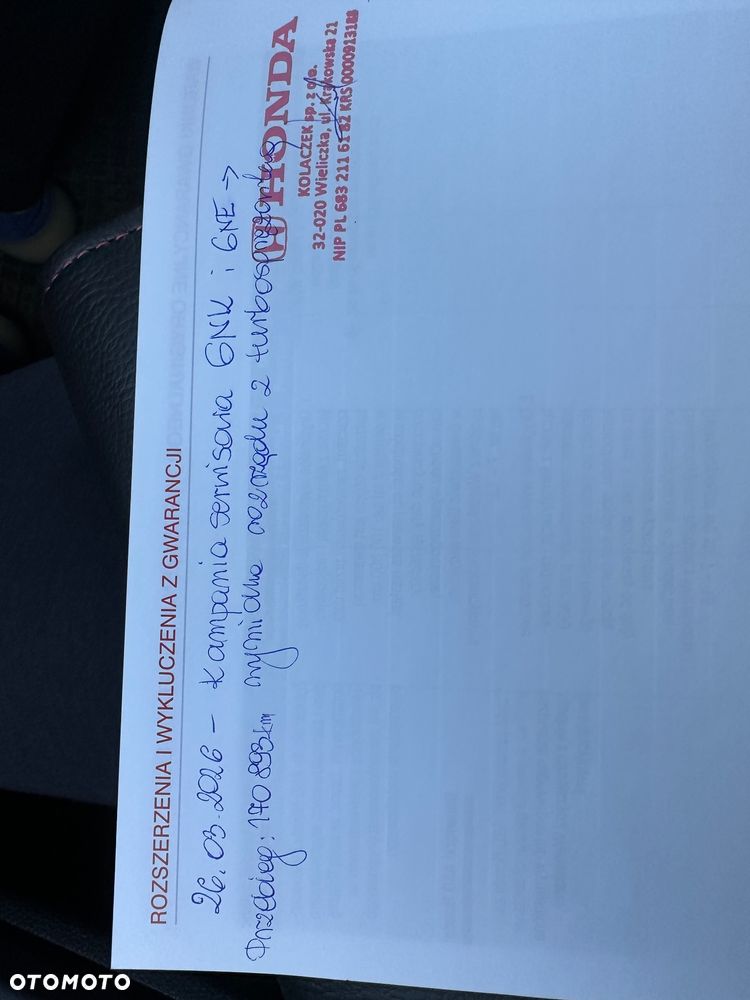 ROZSZERZENIA I WYKLUCZENIA Z GWARANCJI
26.03.2026 - Kampania serwisowa 6NK i 6NE →
Przebieg: 170 893km wymiana rozrządu z turbosprężarką
HONDA
KOLACZEK sp. z o.o.
32-020 Wieliczka, ul. Krakowska 21
NIP PL 683 211 61 82 KRS 0000913188
OTOMOTO